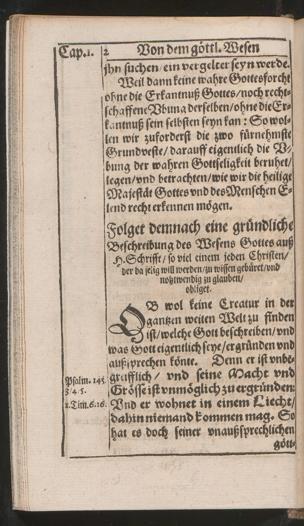 Cap. 1. 2 Von dem göttl. Wesen
jhn suchen/ ein vergelter seyn werde.
Weil dann keine wahre Gottesforcht
ohne die Erkantnuß Gottes/ noch recht-
schaffene Vbung derselben/ ohne die Er-
kantnuß sein selbsten seyn kan: So wol-
len wir zuforderst die zwo fürnehmste
Grundveste/ darauff eigentlich die V-
bung der wahren Gottseligkeit beruhet/
legen/ vnd betrachten/ wie wir die heilige
Majestät Gottes vnd des Menschen E-
lend recht erkennen mögen.
Folget demnach eine gründliche
Beschreibung des Wesens Gottes auß
H. Schrifft/ so viel einem jeden Christen/
der da selig will werden/ zu wissen gebüret/ vnd
nohtwendig zu glauben/
obliget.
OB wol keine Creatur in der
gantzen weiten Welt zu finden
ist/ welche Gott beschreiben/ vnd
was Gott eigentlich seye/ ergründen vnd
außsprechen könte. Denn er ist vnbe-
greifflich/ vnd seine Macht vnd
Psalm. 145.
3/4.5.
Grösse ist vnmöglich zu ergründen:
1. Tim. 6. 16.
Vnd er wohnet in einem Liecht/
dahin niemand kommen mag. So
hat es doch seiner vnaußsprechlichen
gött-